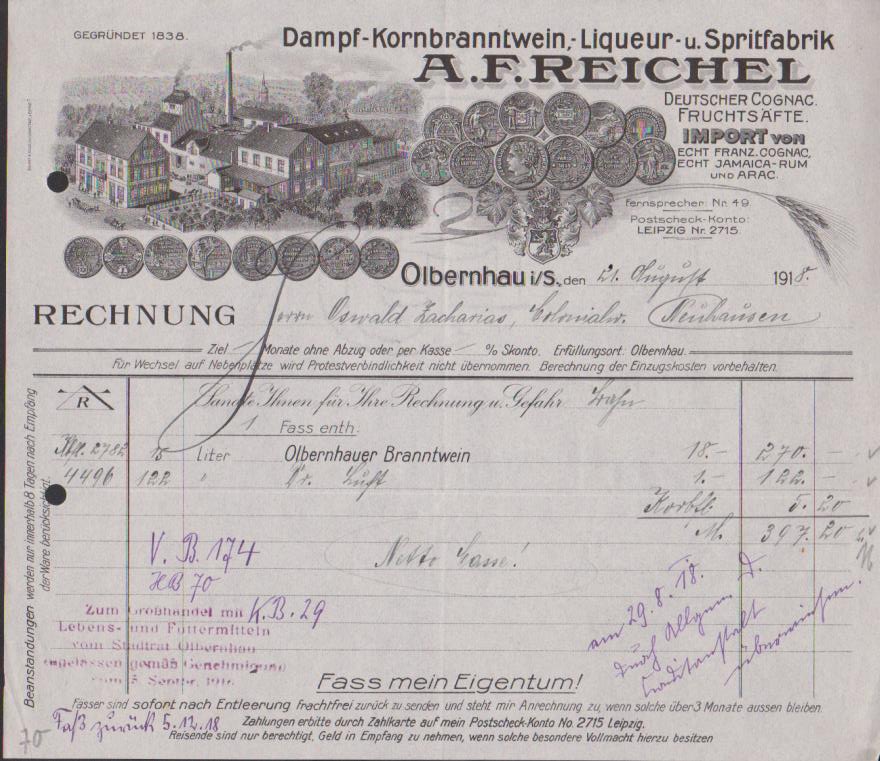 GEGRÜNDET 1838.
Dampf-Kornbranntwein,- Liqueur- u. Spritfabrik
A.F. REICHEL
DEUTSCHER COGNAC.
FRUCHTSÄFTE.
IMPORT VON
ECHT FRANZ. COGNAC,
ECHT JAMAICA-RUM
UND ARAC.
Fernsprecher Nr. 49.
Postscheck-Konto:
LEIPZIG Nr. 2715.
Olbernhau i/S., den 21. August 1918.
RECHNUNG Herrn Oswald Zacharias, Colonialw. Neuhausen
Ziel Monate ohne Abzug oder per Kasse % Skonto. Erfüllungsort: Olbernhau.
Für Wechsel auf Nebenplätze wird Protestverbindlichkeit nicht übernommen. Berechnung der Einzugskosten vorbehalten.
R
Sandte Ihnen für Ihre Rechnung u. Gefahr Bahn
1 Fass enth:
2782 15 Liter Olbernhauer Branntwein 18.- 270. -
4496 122 " 1.- 122. -
5. 20
M. 397. 20
Netto Cassa!
V. B. 174
HB 70
K.B. 29
Zum Großhandel mit
Lebens- und Futtermitteln
vom Stadtrat Olbernhau
zugelassen gemäß Genehmigung
vom 5. Septbr. 1916.
am 29. 8. 18.
durch Allgem. D.
Creditanstalt
überwiesen.
Fass mein Eigentum!
Fässer sind sofort nach Entleerung frachtfrei zurück zu senden und steht mir Anrechnung zu, wenn solche über 3 Monate aussen bleiben.
Faß zurück 5.12.18
Zahlungen erbitte durch Zahlkarte auf mein Postscheck-Konto No. 2715 Leipzig.
Reisende sind nur berechtigt, Geld in Empfang zu nehmen, wenn solche besondere Vollmacht hierzu besitzen
70
Beanstandungen werden nur innerhalb 8 Tagen nach Empfang
der Ware berücksichtigt.